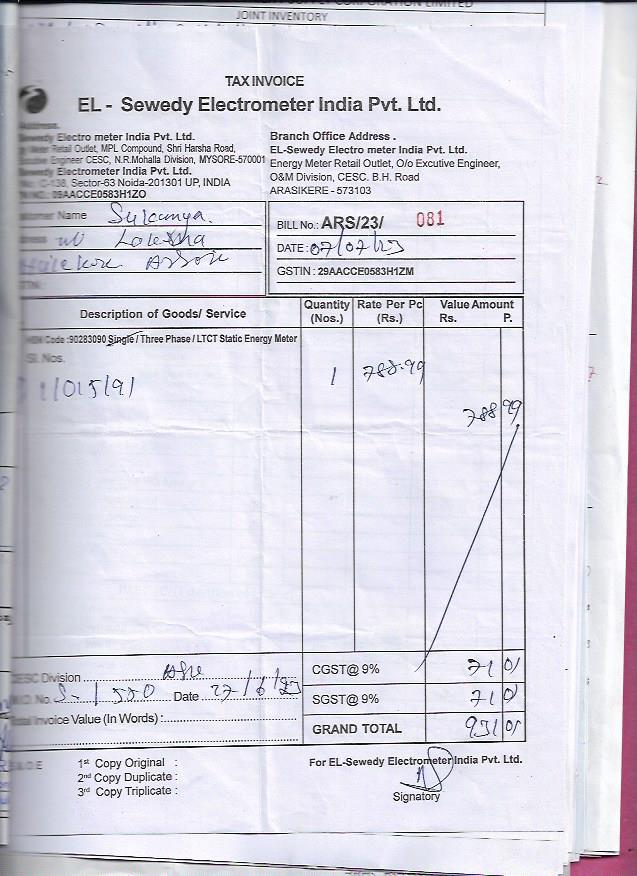 JOINT INVENTORY
TAX INVOICE
EL - Sewedy Electrometer India Pvt. Ltd.
Sewedy Electro meter India Pvt. Ltd.
Meter Retail Outlet, MPL Compound, Shri Harsha Road,
Executive Engineer CESC, N.R.Mohalla Division, MYSORE-570001
Sewedy Electrometer India Pvt. Ltd.
C-138, Sector-63 Noida-201301 UP, INDIA
09AACCE0583H1ZO
Branch Office Address .
EL-Sewedy Electro meter India Pvt. Ltd.
Energy Meter Retail Outlet, O/o Excutive Engineer,
O&M Division, CESC. B.H. Road
ARASIKERE - 573103
Customer Name Sukanya.
w/o Lokesha
BILL No.: ARS/23/ 081
DATE: 07/07/23
GSTIN : 29AACCE0583H1ZM
Description of Goods/ Service
Quantity (Nos.)
Rate Per Pc (Rs.)
Value Amount Rs. P.
HSN Code :90283090 Single / Three Phase / LTCT Static Energy Meter
Sl. Nos.
1 788.99
788 99
CESC Division
CGST@ 9% 71 01
Date 27/6/23
SGST@ 9% 71 01
Total Invoice Value (In Words) :
GRAND TOTAL 931 01
E & O E
1st Copy Original :
2nd Copy Duplicate :
3rd Copy Triplicate :
For EL-Sewedy Electrometer India Pvt. Ltd.
Signatory